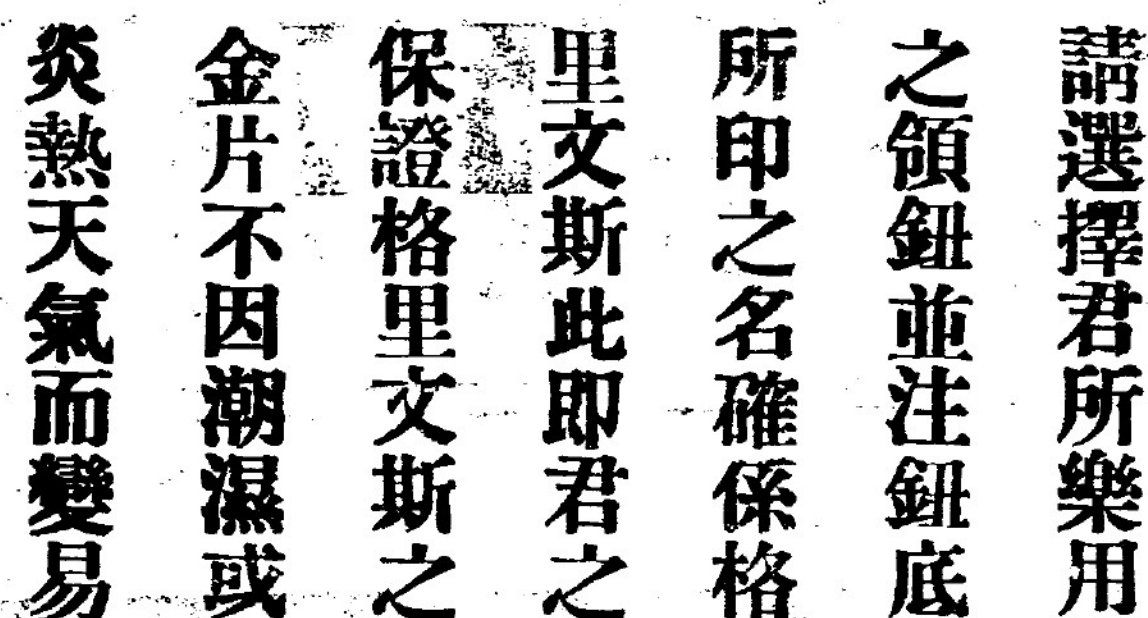 請選擇君所樂用
之領鈕並注鈕底
所印之名確係格
里文斯此即君之
保證格里文斯之
金片不因潮濕或
炎熱天氣而變易